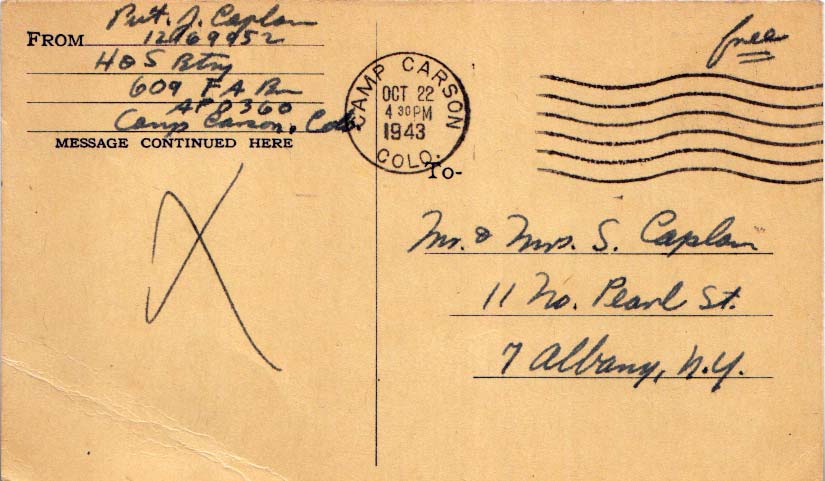 Pvt. J. Caplan
FROM 12169952
H & S Btry
609 F A Bn
APO 360
Camp Carson, Colo.
MESSAGE CONTINUED HERE
CAMP CARSON
OCT 22
4 30 PM
1943
COLO.
free
To-
Mr. & Mrs. S. Caplan
11 No. Pearl St.
7 Albany, N.Y.